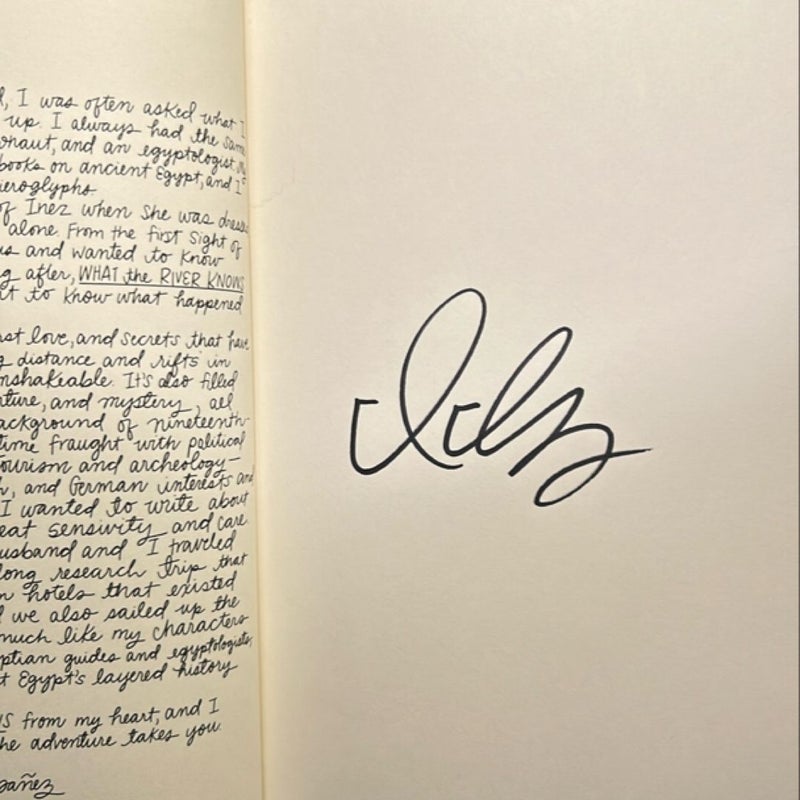 I was often asked what I
up. I always had the same
onaut, and an egyptologist.
books on ancient Egypt, and I
ieroglyphs.
of Inez when she was
alone. From the first sight of
us and wanted to know
g after, WHAT the RIVER KNOWS
t to know what happened
st love, and secrets that have
g distance and rifts in
nshakeable. It's also filled
ture, and mystery, all
ackground of nineteenth-
time fraught with political
tourism and archeology—
h, and German interests and
I wanted to write about
eat sensivity and care.
usband and I traveled
long research trip that
n hotels that existed
d we also sailed up the
much like my characters
ptian guides and egyptologists,
t Egypt's layered history
S from my heart, and I
he adventure takes you.
bañez